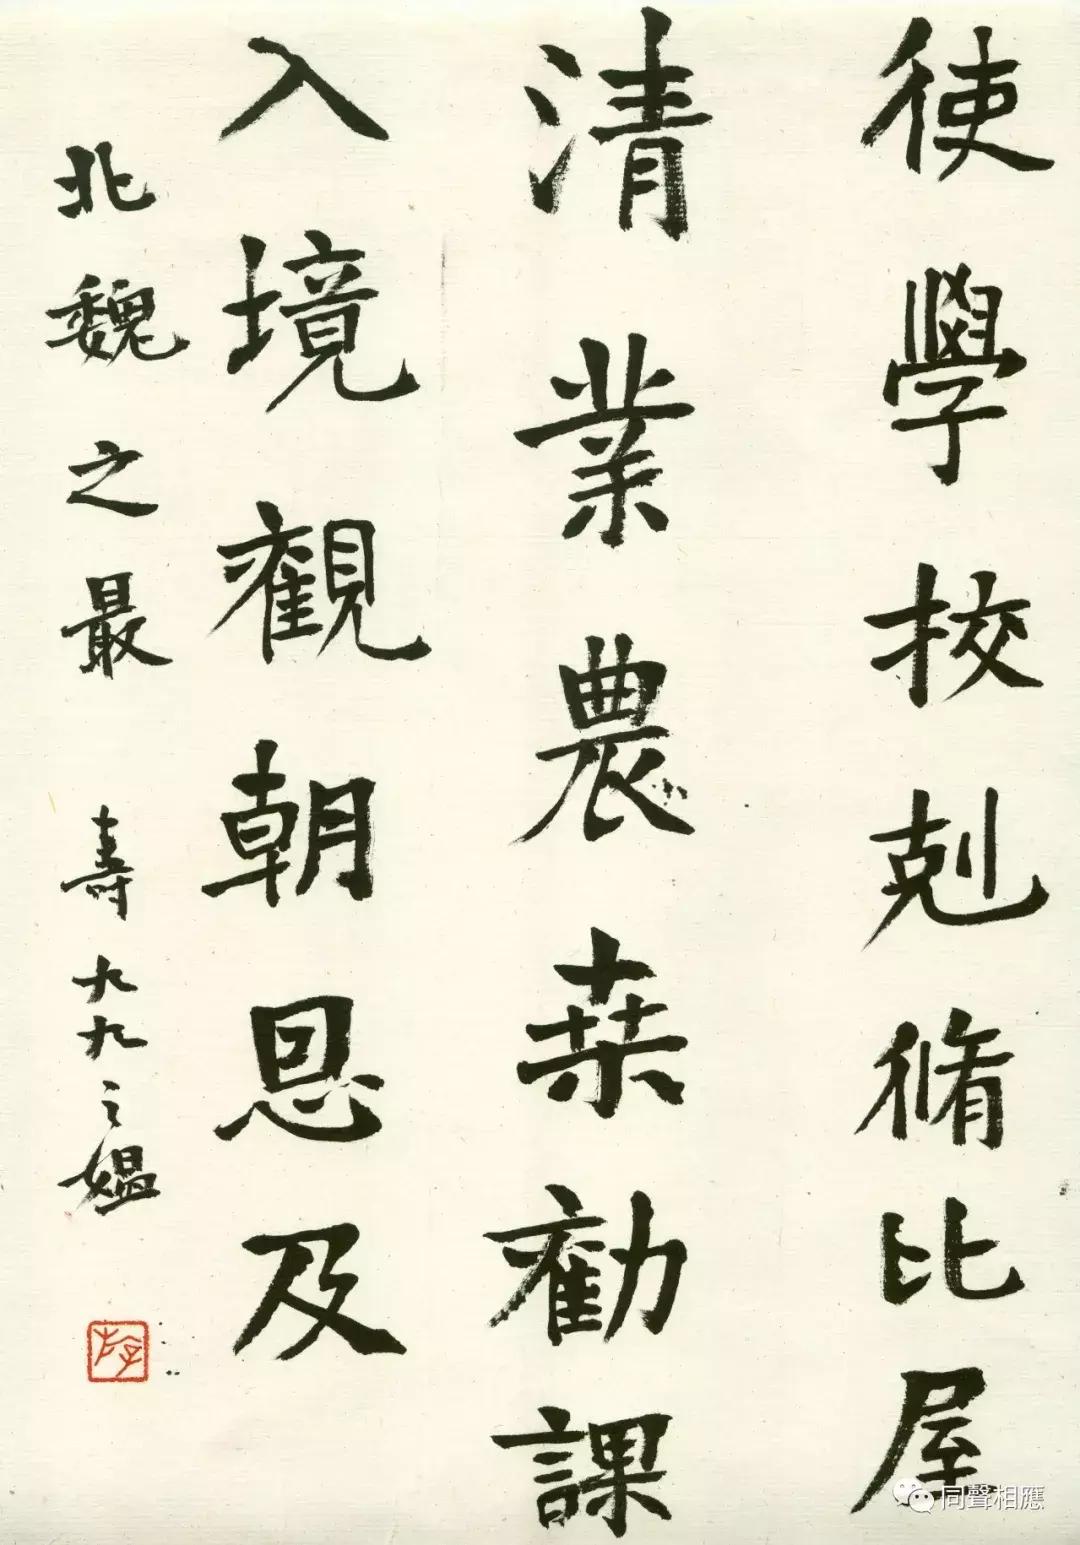 使學校剋脩比屋
清業農桒勸課
入境觀朝恩及
北魏之最 壽九九之媼
同聲相應